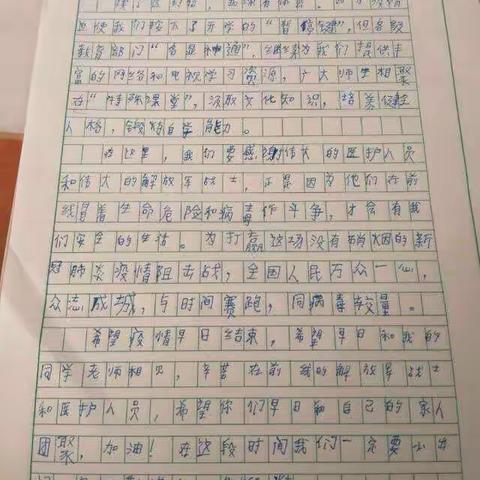 迫使我们按下了开学的“暂停键”，但各级
教育部门“各显神通”，继续为我们提供丰
富的网络和电视学习资源，广大师生相聚
在“特殊课堂”，汲取文化知识，培养健全
人格，锻炼自学能力。
在这里，我们要感谢伟大的医护人员
和伟大的解放军战士，正是因为他们在前
线冒着生命危险和病毒作斗争，才会有我
们安全的生活。为打赢这场没有硝烟的新
冠肺炎疫情阻击战，全国人民万众一心，
众志成城，与时间赛跑，同病毒较量。
希望疫情早日结束，希望早日和我的
同学老师相见，辛苦在前线的解放军战士
和医护人员，希望你们早日和自己的家人
团聚，加油！在这段时间我们一定要少出